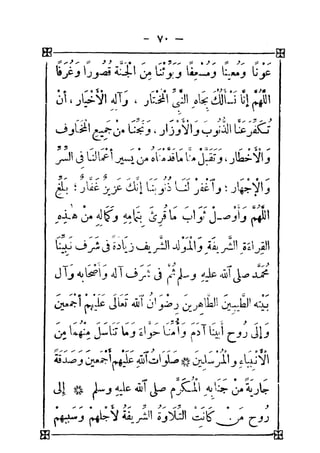 - ٧٠ -
عَوْنًا وَمُعِينًا وَمُسْعِفًا وَبَوِّئْنَا مِنَ الْجَنَّةِ قُصُورًا وَغُرَفًا
اللَّهُمَّ إِنَّا نَسْأَلُكَ بِجَاهِ النَّبِيِّ الْمُخْتَارِ ، وَآلِهِ الْأَخْيَارِ ، أَنْ
تُكَفِّرَ عَنَّا الذُّنُوبَ وَالْأَوْزَارَ ، وَنَجِّنَا مِنْ جَمِيعِ الْمَخَاوِفِ
وَالْأَخْطَارِ ، وَتَقَبَّلْ مِنَّا مَا قَدَّمْنَاهُ مِنْ يَسِيرِ أَعْمَالِنَا فِي السِّرِّ
وَالْإِجْهَارِ ؛ وَاغْفِرْ لَنَا ذُنُوبَنَا إِنَّكَ عَزِيزٌ غَفَّارٌ ؛ بَلِّغِ
اللَّهُمَّ وَأَوْصِلْ ثَوَابَ مَا قُرِئَ بِتَمَامِهِ وَكَمَالِهِ مِنْ هَذِهِ
الْقِرَاءَةِ الشَّرِيفَةِ وَالْمَوْلِدِ الشَّرِيفِ زِيَادَةً فِي شَرَفِ نَبِيِّنَا
مُحَمَّدٍ صَلَّى اللَّهُ عَلَيْهِ وَسَلَّمَ ثُمَّ فِي شَرَفِ آلِهِ وَأَصْحَابِهِ وَآلِ
بَيْتِهِ الطَّيِّبِينَ الطَّاهِرِينَ رِضْوَانُ اللَّهِ تَعَالَى عَلَيْهِمْ أَجْمَعِينَ
وَإِلَى رُوحِ أَبِينَا آدَمَ وَأُمِّنَا حَوَّاءَ وَمَا تَنَاسَلَ مِنْهُمَا مِنَ
الْأَنْبِيَاءِ وَالْمُرْسَلِينَ * صَلَوَاتُ اللَّهِ عَلَيْهِمْ أَجْمَعِينَ وَصَدَقَةً
جَارِيَةً مِنْ جَنَابِهِ الْمُكَرَّمِ صَلَّى اللَّهُ عَلَيْهِ وَسَلَّمَ * إِلَى
رُوحِ مَنْ كَانَتِ التِّلَاوَةُ الشَّرِيفَةُ لِأَجْلِهِمْ وَسَبَبِهِمْ